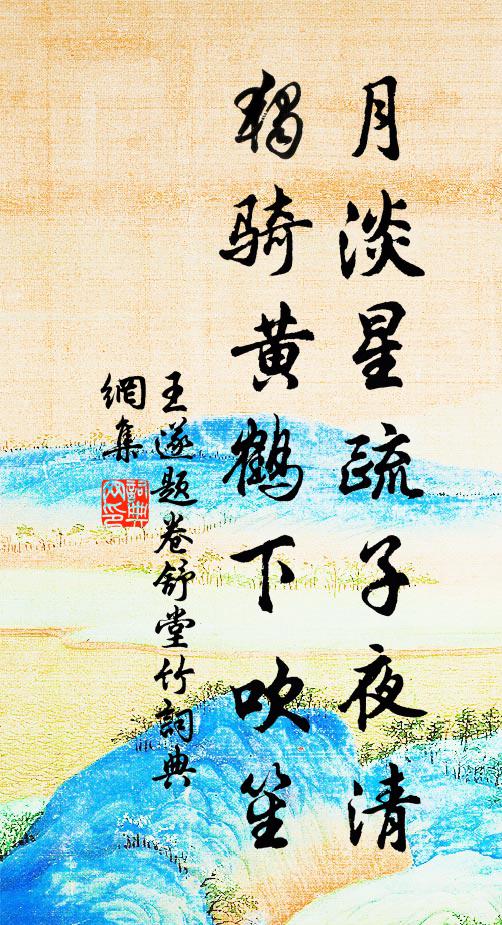 月淡星疏子夜清
獨骑黄鶴下吹笙
王遂题卷舒堂竹詞典
網集
詞典